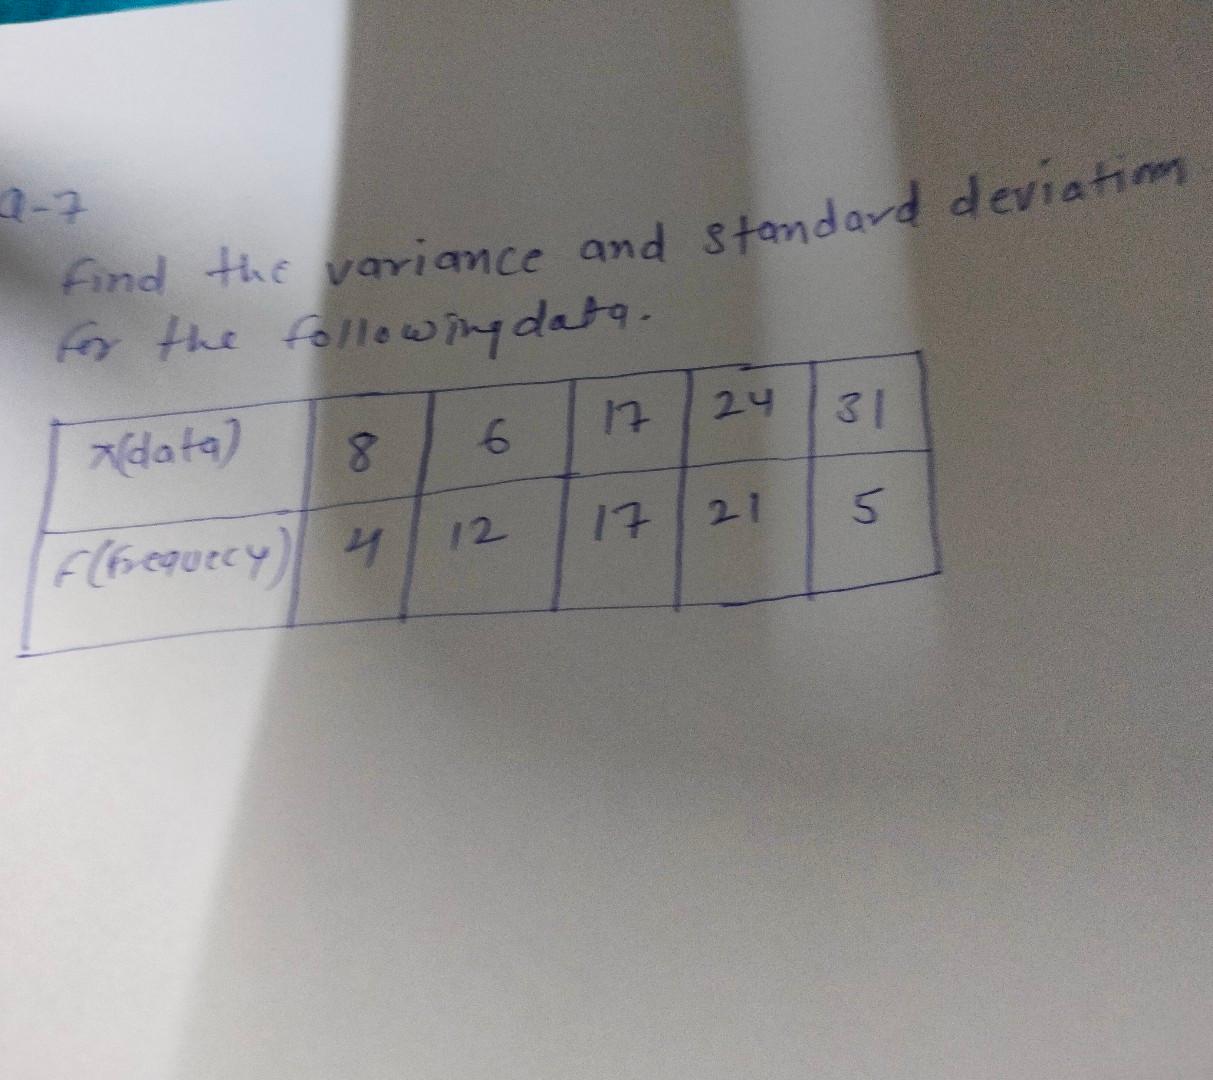 Q-7
Find the variance and standard deviation
for the following data.
x(data) 8 6 17 24 31
f(frequecy) 4 12 17 21 5